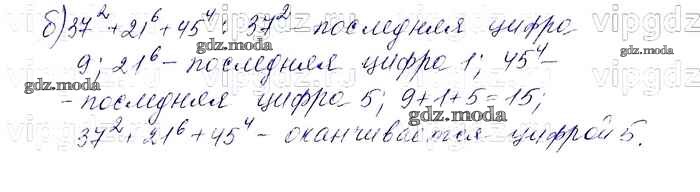 б) 37² + 21⁶ + 45⁴: 37² – последняя цифра
9; 21⁶ – последняя цифра 1; 45⁴ –
– последняя цифра 5; 9+1+5=15;
37² + 21⁶ + 45⁴ – оканчивается цифрой 5.
gdz.moda
gdz.moda
gdz.moda
gdz.moda
gdz.moda